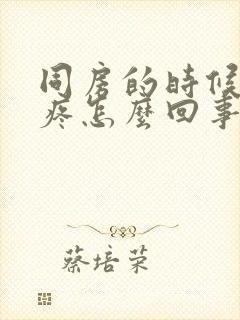 同房的時候
疼怎麼回事
蔡培荣